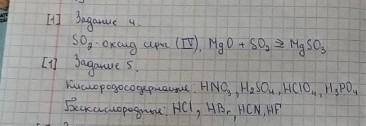 [1] Задание 4.
SO₂ - оксид серы (IV), MgO + SO₂ ⇄ MgSO₃
[1] Задание 5.
Кислородосодержащие: HNO₃, H₂SO₄, HClO₄, H₃PO₄
Бескислородные: HCl, HBr, HCN, HF